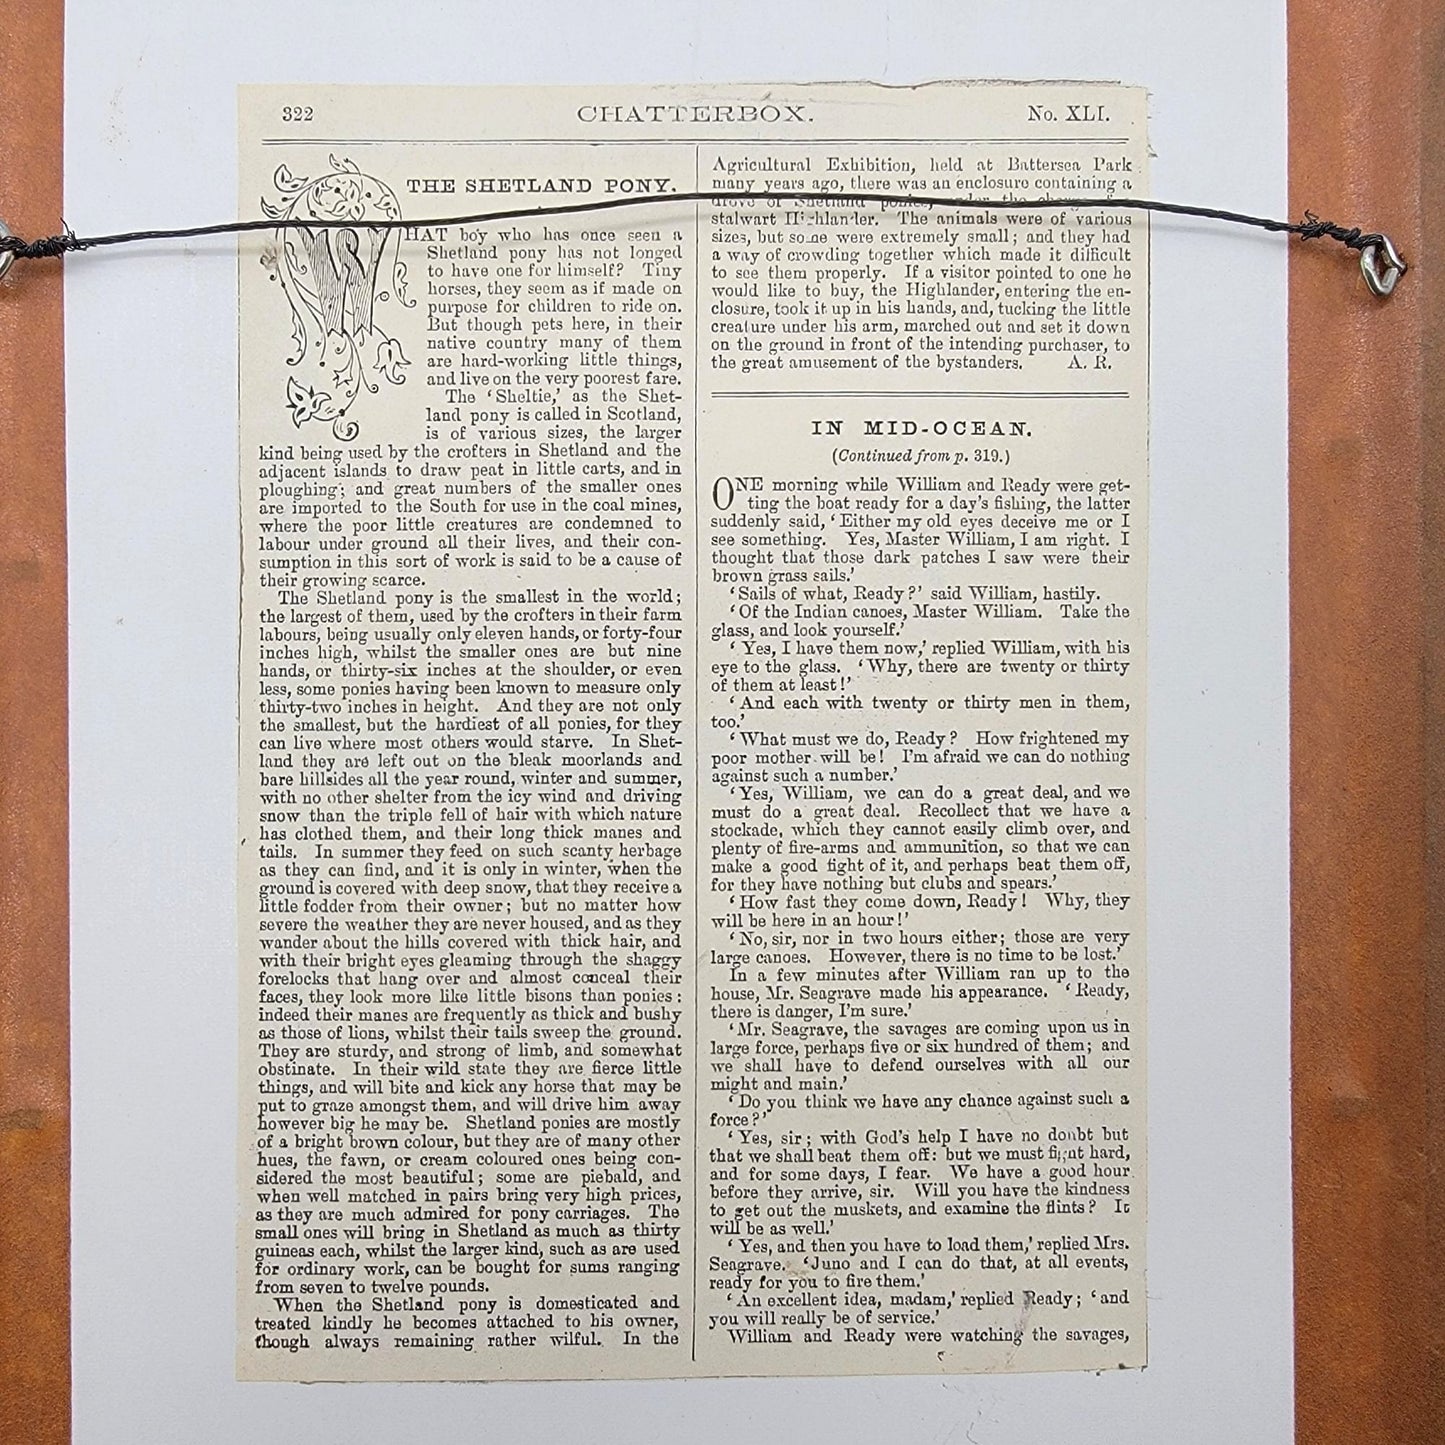 322
CHATTERBOX.
No. XLI.
THE SHETLAND PONY.
WHAT boy who has once seen a
Shetland pony has not longed
to have one for himself? Tiny
horses, they seem as if made on
purpose for children to ride on.
But though pets here, in their
native country many of them
are hard-working little things,
and live on the very poorest fare.
The ‘Sheltie,’ as the Shet-
land pony is called in Scotland,
is of various sizes, the larger
kind being used by the crofters in Shetland and the
adjacent islands to draw peat in little carts, and in
ploughing; and great numbers of the smaller ones
are imported to the South for use in the coal mines,
where the poor little creatures are condemned to
labour under ground all their lives, and their con-
sumption in this sort of work is said to be a cause of
their growing scarce.
The Shetland pony is the smallest in the world;
the largest of them, used by the crofters in their farm
labours, being usually only eleven hands, or forty-four
inches high, whilst the smaller ones are but nine
hands, or thirty-six inches at the shoulder, or even
less, some ponies having been known to measure only
thirty-two inches in height. And they are not only
the smallest, but the hardiest of all ponies, for they
can live where most others would starve. In Shet-
land they are left out on the bleak moorlands and
bare hillsides all the year round, winter and summer,
with no other shelter from the icy wind and driving
snow than the triple fell of hair with which nature
has clothed them, and their long thick manes and
tails. In summer they feed on such scanty herbage
as they can find, and it is only in winter, when the
ground is covered with deep snow, that they receive a
little fodder from their owner; but no matter how
severe the weather they are never housed, and as they
wander about the hills covered with thick hair, and
with their bright eyes gleaming through the shaggy
forelocks that hang over and almost conceal their
faces, they look more like little bisons than ponies:
indeed their manes are frequently as thick and bushy
as those of lions, whilst their tails sweep the ground.
They are sturdy, and strong of limb, and somewhat
obstinate. In their wild state they are fierce little
things, and will bite and kick any horse that may be
put to graze amongst them, and will drive him away
however big he may be. Shetland ponies are mostly
of a bright brown colour, but they are of many other
hues, the fawn, or cream coloured ones being con-
sidered the most beautiful; some are piebald, and
when well matched in pairs bring very high prices,
as they are much admired for pony carriages. The
small ones will bring in Shetland as much as thirty
guineas each, whilst the larger kind, such as are used
for ordinary work, can be bought for sums ranging
from seven to twelve pounds.
When the Shetland pony is domesticated and
treated kindly he becomes attached to his owner,
though always remaining rather wilful. In the
Agricultural Exhibition, held at Battersea Park
many years ago, there was an enclosure containing a
drove of Shetland ponies, under the charge of a
stalwart Highlander. The animals were of various
sizes, but some were extremely small; and they had
a way of crowding together which made it difficult
to see them properly. If a visitor pointed to one he
would like to buy, the Highlander, entering the en-
closure, took it up in his hands, and, tucking the little
creature under his arm, marched out and set it down
on the ground in front of the intending purchaser, to
the great amusement of the bystanders. A. R.
IN MID-OCEAN.
(Continued from p. 319.)
ONE morning while William and Ready were get-
ting the boat ready for a day's fishing, the latter
suddenly said, ‘Either my old eyes deceive me or I
see something. Yes, Master William, I am right. I
thought that those dark patches I saw were their
brown grass sails.’
‘Sails of what, Ready?’ said William, hastily.
‘Of the Indian canoes, Master William. Take the
glass, and look yourself.’
‘Yes, I have them now,’ replied William, with his
eye to the glass. ‘Why, there are twenty or thirty
of them at least!’
‘And each with twenty or thirty men in them,
too.’
‘What must we do, Ready? How frightened my
poor mother will be! I'm afraid we can do nothing
against such a number.’
‘Yes, William, we can do a great deal, and we
must do a great deal. Recollect that we have a
stockade, which they cannot easily climb over, and
plenty of fire-arms and ammunition, so that we can
make a good fight of it, and perhaps beat them off,
for they have nothing but clubs and spears.’
‘How fast they come down, Ready! Why, they
will be here in an hour!’
‘No, sir, nor in two hours either; those are very
large canoes. However, there is no time to be lost.’
In a few minutes after William ran up to the
house, Mr. Seagrave made his appearance. ‘Ready,
there is danger, I'm sure.’
‘Mr. Seagrave, the savages are coming upon us in
large force, perhaps five or six hundred of them; and
we shall have to defend ourselves with all our
might and main.’
‘Do you think we have any chance against such a
force?’
‘Yes, sir; with God's help I have no doubt but
that we shall beat them off: but we must fight hard,
and for some days, I fear. We have a good hour
before they arrive, sir. Will you have the kindness
to get out the muskets, and examine the flints? It
will be as well.’
‘Yes, and then you have to load them,’ replied Mrs.
Seagrave. ‘Juno and I can do that, at all events,
ready for you to fire them.’
‘An excellent idea, madam,’ replied Ready; ‘and
you will really be of service.’
William and Ready were watching the savages,